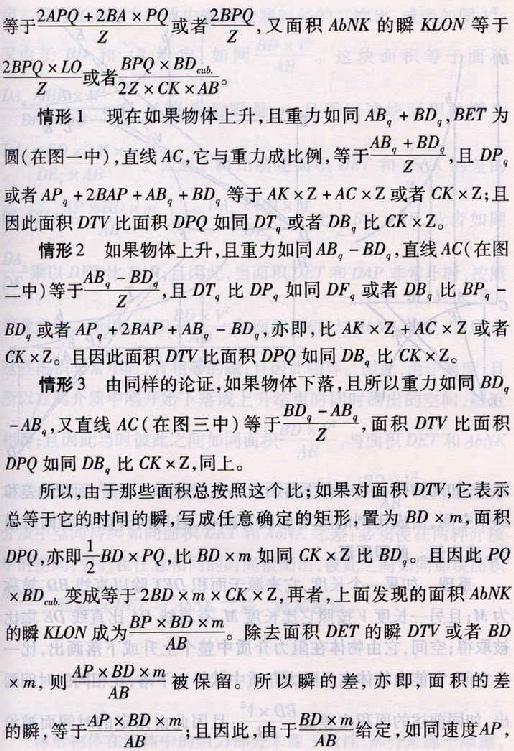 等于$\frac{2APQ+2BA\times PQ}{Z}$或者$\frac{2BPQ}{Z}$,又面积 AbNK 的瞬 KLON 等于
$\frac{2BPQ\times LO}{Z}$或者$\frac{BPQ\times BD_{cub.}}{2Z\times CK\times AB}$。
情形1 现在如果物体上升,且重力如同 $AB_q+BD_q$,BET 为
圆(在图一中),直线 AC,它与重力成比例,等于$\frac{AB_q+BD_q}{Z}$,且 $DP_q$
或者 $AP_q+2BAP+AB_q+BD_q$ 等于 AK×Z+AC×Z 或者 CK×Z;且
因此面积 DTV 比面积 DPQ 如同 $DT_q$ 或者 $DB_q$ 比 CK×Z。
情形2 如果物体上升,且重力如同 $AB_q-BD_q$,直线 AC(在图
二中)等于$\frac{AB_q-BD_q}{Z}$,且 $DT_q$ 比 $DP_q$ 如同 $DF_q$ 或者 $DB_q$ 比 $BP_q-$
$BD_q$ 或者 $AP_q+2BAP+AB_q-BD_q$,亦即,比 AK×Z+AC×Z 或者
CK×Z。且因此面积 DTV 比面积 DPQ 如同 $DB_q$ 比 CK×Z。
情形3 由同样的论证,如果物体下落,且所以重力如同 $BD_q$
$-AB_q$,又直线 AC(在图三中)等于$\frac{BD_q-AB_q}{Z}$,面积 DTV 比面积
DPQ 如同 $DB_q$ 比 CK×Z,同上。
所以,由于那些面积总按照这个比;如果对面积 DTV,它表示
总等于它的时间的瞬,写成任意确定的矩形,置为 BD×m,面积
DPQ,亦即$\frac{1}{2}$BD×PQ,比 BD×m 如同 CK×Z 比 $BD_q$。且因此 PQ
×$BD_{cub.}$ 变成等于 2BD×m×CK×Z,再者,上面发现的面积 AbNK
的瞬 KLON 成为$\frac{BP\times BD\times m}{AB}$。除去面积 DET 的瞬 DTV 或者 BD
×m,则$\frac{AP\times BD\times m}{AB}$被保留。所以瞬的差,亦即,面积的差
的瞬,等于$\frac{AP\times BD\times m}{AB}$;且因此,由于$\frac{BD\times m}{AB}$给定,如同速度AP,